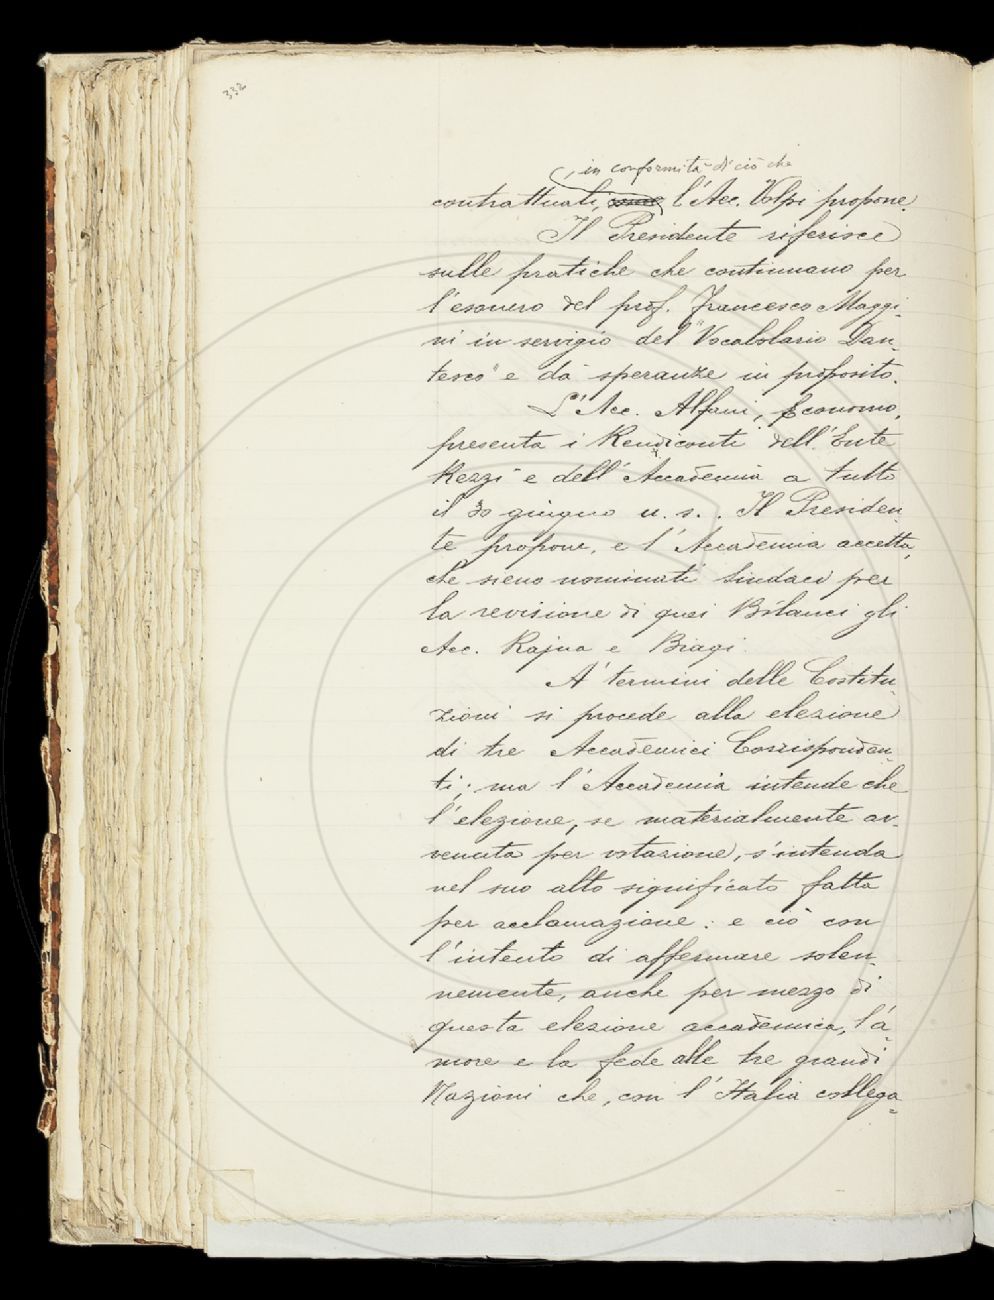 332
, in conformità di ciò che
contrattuali, l'Acc. Volpi propone.
Il Presidente riferisce
sulle pratiche che continuano per
l'esonero del prof. Francesco Maggi-
ni in servigio del "Vocabolario Dan-
tesco" e dà speranze in proposito.
L'Acc. Alfani, Economo,
presenta i Rendiconti dell'Ente
Rezzi e dell'Accademia a tutto
il 30 giugno u. s. . Il Presiden-
te propone, e l'Accademia accetta,
che sieno nominati Sindaci per
la revisione di quei Bilanci gli
Acc. Rajna e Biagi.
A' termini delle Costitu-
zioni si procede alla elezione
di tre Accademici Corrisponden-
ti; ma l'Accademia intende che
l'elezione, se materialmente av-
venuta per votazione, s'intenda
nel suo alto significato fatta
per acclamazione: e ciò con
l'intento di affermare solen-
nemente, anche per mezzo di
questa elezione accademica, l'a-
more e la fede alle tre grandi
Nazioni che, con l'Italia collega-